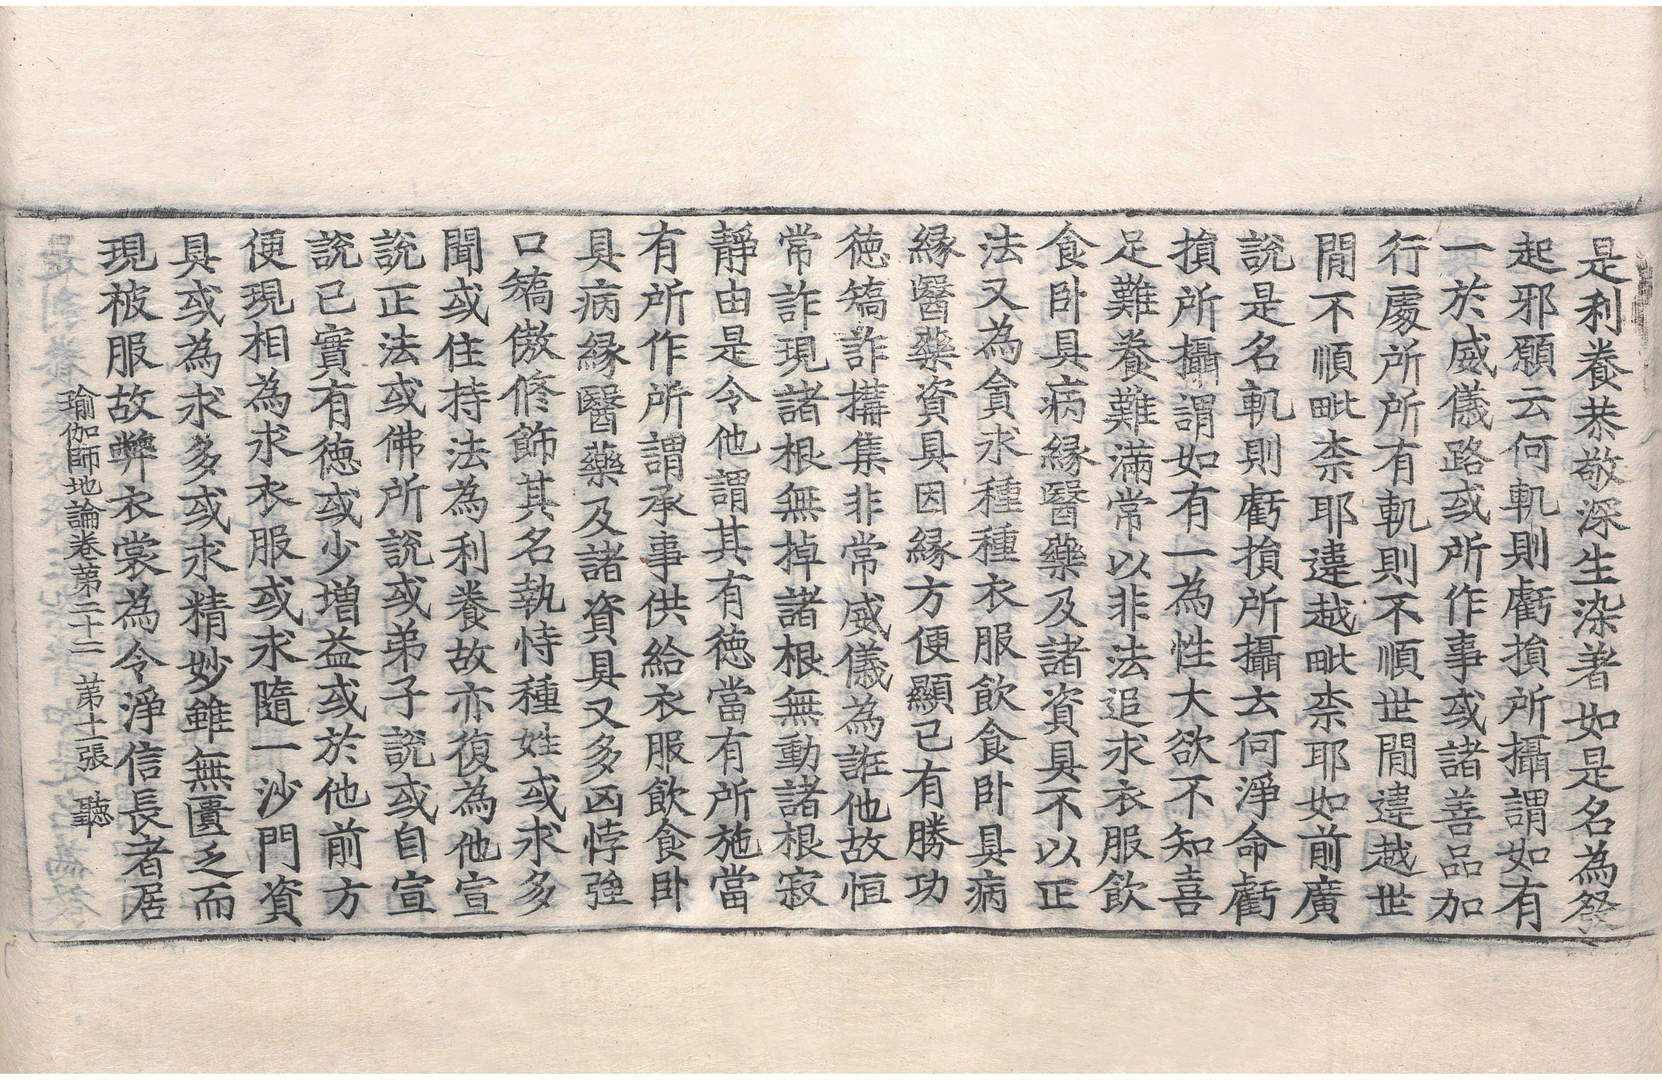 是利養恭敬深生染著如是名為發
起邪願云何軌則虧損所攝謂如有
一於威儀路或所作事或諸善品加
行處所所有軌則不順世間違越世
間不順毗柰耶違越毗柰耶如前廣
說是名軌則虧損所攝云何淨命虧
損所攝謂如有一為性大欲不知喜
足難養難滿常以非法追求衣服飲
食卧具病縁醫藥及諸資具不以正
法又為貪求種種衣服飲食卧具病
縁醫藥資具因縁方便顯已有勝功
德矯詐搆集非常威儀為誑他故恒
常詐現諸根無掉諸根無動諸根寂
靜由是令他謂其有德當有所施當
有所作所謂承事供給衣服飲食卧
具病縁醫藥及諸資具又多凶悖強
口矯傲修飾其名執恃種姓或求多
聞或住持法為利養故亦復為他宣
說正法或佛所說或弟子說或自宣
說已實有德或少增益或於他前方
便現相為求衣服或求隨一沙門資
具或為求多或求精妙雖無匱乏而
現被服故弊衣裳為令淨信長者居
瑜伽師地論卷第二十二 第十一張 聽